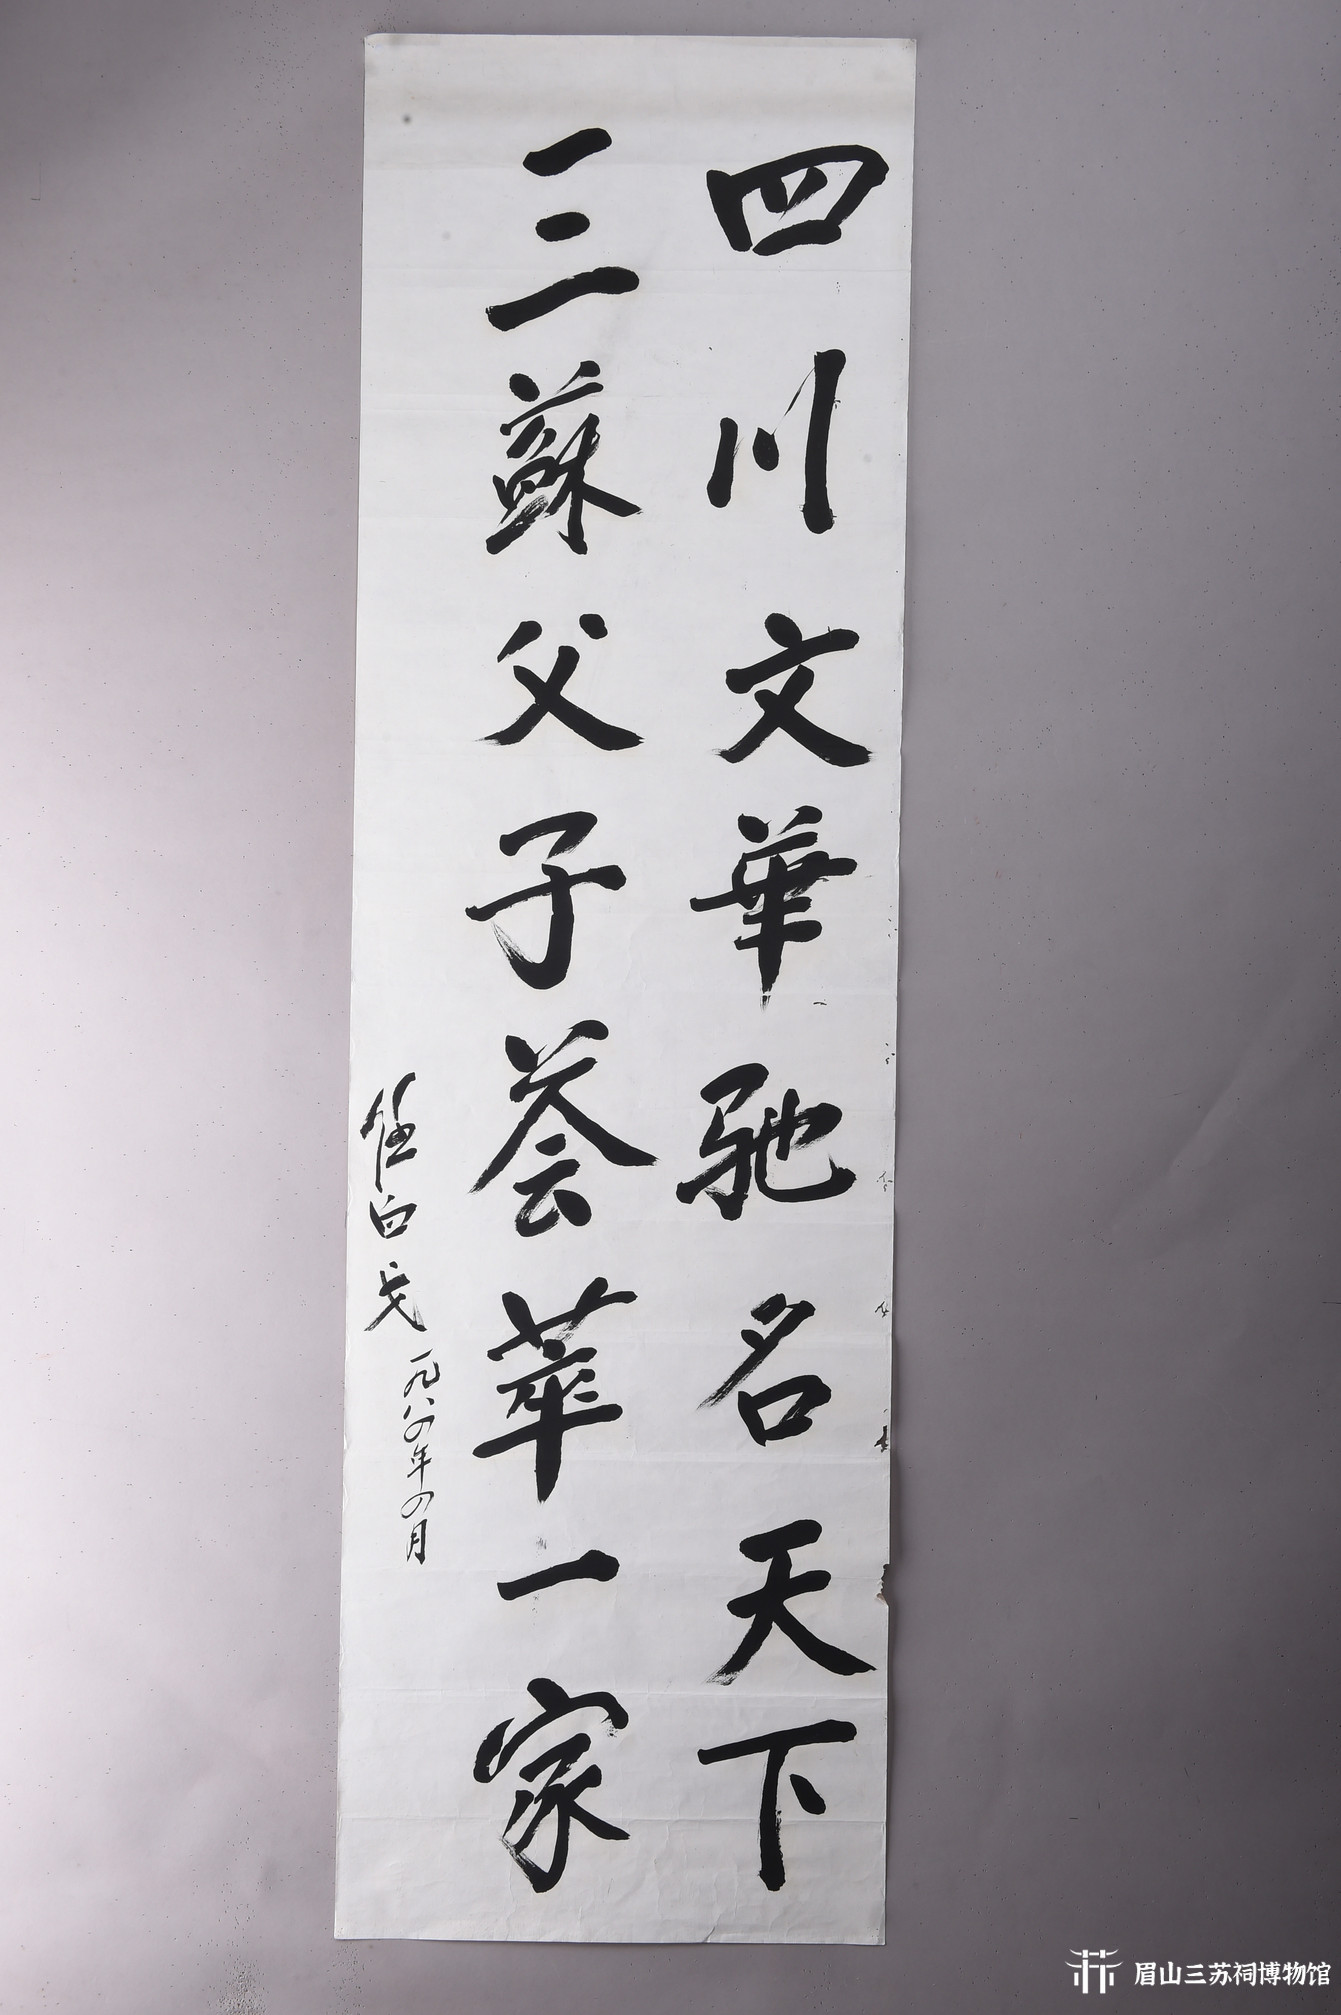 四川文華馳名天下
三蘇父子荟萃一家
任白戈
一九八四年四月
眉山三苏祠博物馆